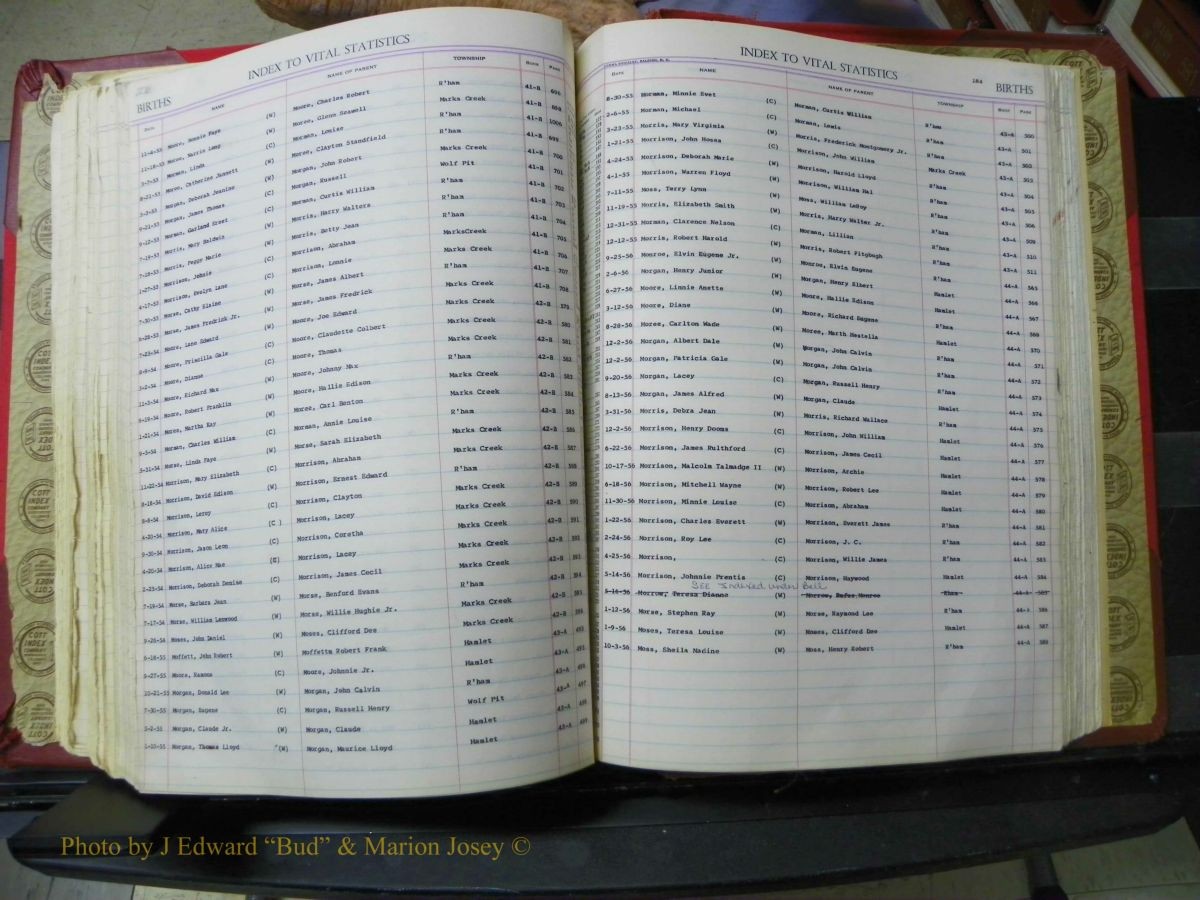 INDEX TO VITAL STATISTICS
BIRTHS
DATE NAME NAME OF PARENT TOWNSHIP BOOK PAGE
11-4-53 Moore, Bonnie Faye (W) Moore, Charles Robert R'ham 41-B 696
11-18-53 Moree, Marrie Lamp (W) Moree, Glenn Seawell Marks Creek 41-B 698
3-7-53 Morman, Linda (C) Morman, Louise R'ham 41-B 1006
8-21-53 Moree, Catherine Junnett (W) Moree, Clayton Standfield R'ham 41-B 699
3-3-53 Morgan, Deborah Jeanine (W) Morgan, John Robert Marks Creek 41-B 700
9-21-53 Morgan, James Thomas (C) Morgan, Russell Wolf Pit 41-B 701
9-12-53 Morman, Garland Street (C) Morman, Curtis William R'ham 41-B 702
7-19-53 Morris, Mary Baldwin (W) Morris, Harry Walters R'ham 41-B 703
7-18-53 Morris, Peggy Marie (W) Morris, Betty Jean R'ham 41-B 704
1-27-53 Morrison, Johnie (C) Morrison, Abraham MarksCreek 41-B 705
4-17-53 Morrison, Evelyn Lane (C) Morrison, Lonnie Marks Creek 41-B 706
7-30-53 Morse, Cathy Elaine (W) Morse, James Albert R'ham 41-B 707
8-28-53 Morse, James Fredrick Jr. (W) Morse, James Fredrick Marks Creek 41-B 708
7-23-54 Moore, Lane Edward (W) Moore, Joe Edward Marks Creek 42-B 579
8-8-54 Moore, Priscilla Gale (C) Moore, Claudette Colbert Marks Creek 42-B 580
5-2-54 Moore, Dianne (C) Moore, Thomas Marks Creek 42-B 581
11-3-54 Moore, Richard Max (W) Moore, Johnny Max R'ham 42-B 582
9-19-54 Moore, Robert Franklin (W) Moore, Hallie Edison Marks Creek 42-B 583
1-21-54 Moree, Martha Kay (W) Moree, Carl Benton Marks Creek 42-B 584
9-5-54 Morman, Charles William (C) Morman, Annie Louise R'ham 42-B 585
5-31-54 Morse, Linda Faye (W) Morse, Sarah Elizabeth Marks Creek 42-B 586
11-22-54 Morrison, Mary Elizabeth (C) Morrison, Abrahan Marks Creek 42-B 587
8-18-54 Morrison, David Edison (W) Morrison, Ernest Edward R'ham 42-B 588
9-8-54 Morrison, Leroy (C) Morrison, Clayton Marks Creek 42-B 589
4-20-54 Morrison, Mary Alice (C) Morrison, Lacey Marks Creek 42-B 590
9-30-54 Morrison, Jason Leon (C) Morrison, Coretha Marks Creek 42-B 591
4-20-54 Morrison, Alice Mae (C) Morrison, Lacey Marks Creek 42-B 592
2-23-54 Morrison, Deborah Denise (C) Morrison, James Cecil Marks Creek 42-B 593
7-19-54 Morse, Barbara Jean (W) Morse, Benford Evans R'ham 42-B 594
7-17-54 Morse, William Lenwood (W) Morse, Willie Hughie Jr. Marks Creek 42-B 595
9-26-54 Moses, John Daniel (W) Moses, Clifford Dee Marks Creek 42-B 596
6-18-55 Moffett, John Robert (W) Moffett Robert Frank Hamlet 43-A 493
9-27-55 Moore, Ramona (C) Moore, Johnnie Jr. Hamlet 43-A 495
10-21-55 Morgan, Donald Lee (W) Morgan, John Calvin R'ham 43-A 496
7-30-55 Morgan, Eugene (C) Morgan, Russell Henry Wolf Pit 43-A 497
5-2-55 Morgan, Claude Jr. (W) Morgan, Claude Hamlet 43-A 498
1-10-55 Morgan, Thomas Lloyd (W) Morgan, Maurice Lloyd Hamlet 43-A 499
INDEX TO VITAL STATISTICS
184 BIRTHS
DATE NAME NAME OF PARENT TOWNSHIP BOOK PAGE
8-30-55 Morman, Minnie Evet (C) Morman, Curtis William R'ham 43-A 500
2-6-55 Morman, Michael (C) Morman, Lewis R'ham 43-A 501
3-23-55 Morris, Mary Virginia (W) Morris, Frederick Montgomery Jr. R'ham 43-A 502
1-21-55 Morrison, John Hossa (C) Morrison, John William Marks Creek 43-A 503
4-24-53 Morrison, Deborah Marie (W) Morrison, Harold Lloyd R'ham 43-A 504
4-1-55 Morrison, Warren Floyd (W) Morrison, William Hal R'ham 43-A 505
7-11-55 Moss, Terry Lynn (W) Moss, William LeRoy R'ham 43-A 506
11-19-55 Morris, Elizabeth Smith (W) Morris, Harry Walter Jr. R'ham 43-A 509
12-31-55 Morman, Clarence Nelson (C) Morman, Lillian R'ham 43-A 510
12-12-55 Morris, Robert Harold (W) Morris, Robert Fitzhugh R'ham 43-A 511
9-25-56 Monroe, Elvin Eugene Jr. (W) Monroe, Elvin Eugene Hamlet 44-A 565
2-6-56 Morgan, Henry Junior (W) Morgan, Henry Elbert Hamlet 44-A 566
6-27-56 Moore, Linnie Anette (W) Moore, Hallie Edison R'ham 44-A 567
3-12-56 Moore, Diane (W) Moore, Richard Eugene Hamlet 44-A 569
8-28-56 Moree, Carlton Wade (W) Moree, Marth Hestella R'ham 44-A 570
12-2-56 Morgan, Albert Dale (W) Morgan, John Calvin R'ham 44-A 571
12-2-56 Morgan, Patricia Gale (W) Morgan, John Calvin R'ham 44-A 572
9-20-56 Morgan, Lacey (C) Morgan, Russell Henry Hamlet 44-A 573
8-13-56 Morgan, James Alfred (W) Morgan, Claude Hamlet 44-A 574
3-31-56 Morris, Debra Jean (W) Morris, Richard Wallace R'ham 44-A 575
12-2-56 Morrison, Henry Dooms (C) Morrison, John William Hamlet 44-A 576
6-22-56 Morrison, James Rulthford (C) Morrison, James Cecil Hamlet 44-A 577
10-17-56 Morrison, Malcolm Talmadge II (W) Morrison, Archie Hamlet 44-A 578
6-18-56 Morrison, Mitchell Wayne (W) Morrison, Robert Lee Hamlet 44-A 579
11-30-56 Morrison, Minnie Louise (C) Morrison, Abraham Hamlet 44-A 580
1-22-56 Morrison, Charles Everett (W) Morrison, Everett James R'ham 44-A 581
2-24-56 Morrison, Roy Lee (C) Morrison, J. C. R'ham 44-A 582
4-25-56 Morrison, (C) Morrison, Willie James R'ham 44-A 583
5-14-56 Morrison, Johnnie Prentis (C) Morrison, Haywood Hamlet 44-A 584
SEE Indexed under Bell
5-14-56 Morrow, Teresa Dianne (W) Morrow, Rufus Monroe Rham 44-A 585
1-12-56 Morse, Stephen Ray (W) Morse, Raymond Lee R'ham 44-A 586
1-9-56 Moses, Teresa Louise (W) Moses, Clifford Dee Hamlet 44-A 587
10-3-56 Moss, Sheila Nadine (W) Moss, Henry Robert R'ham 44-A 589
COTT INDEX COMPANY
Photo by J Edward “Bud” & Marion Josey ©